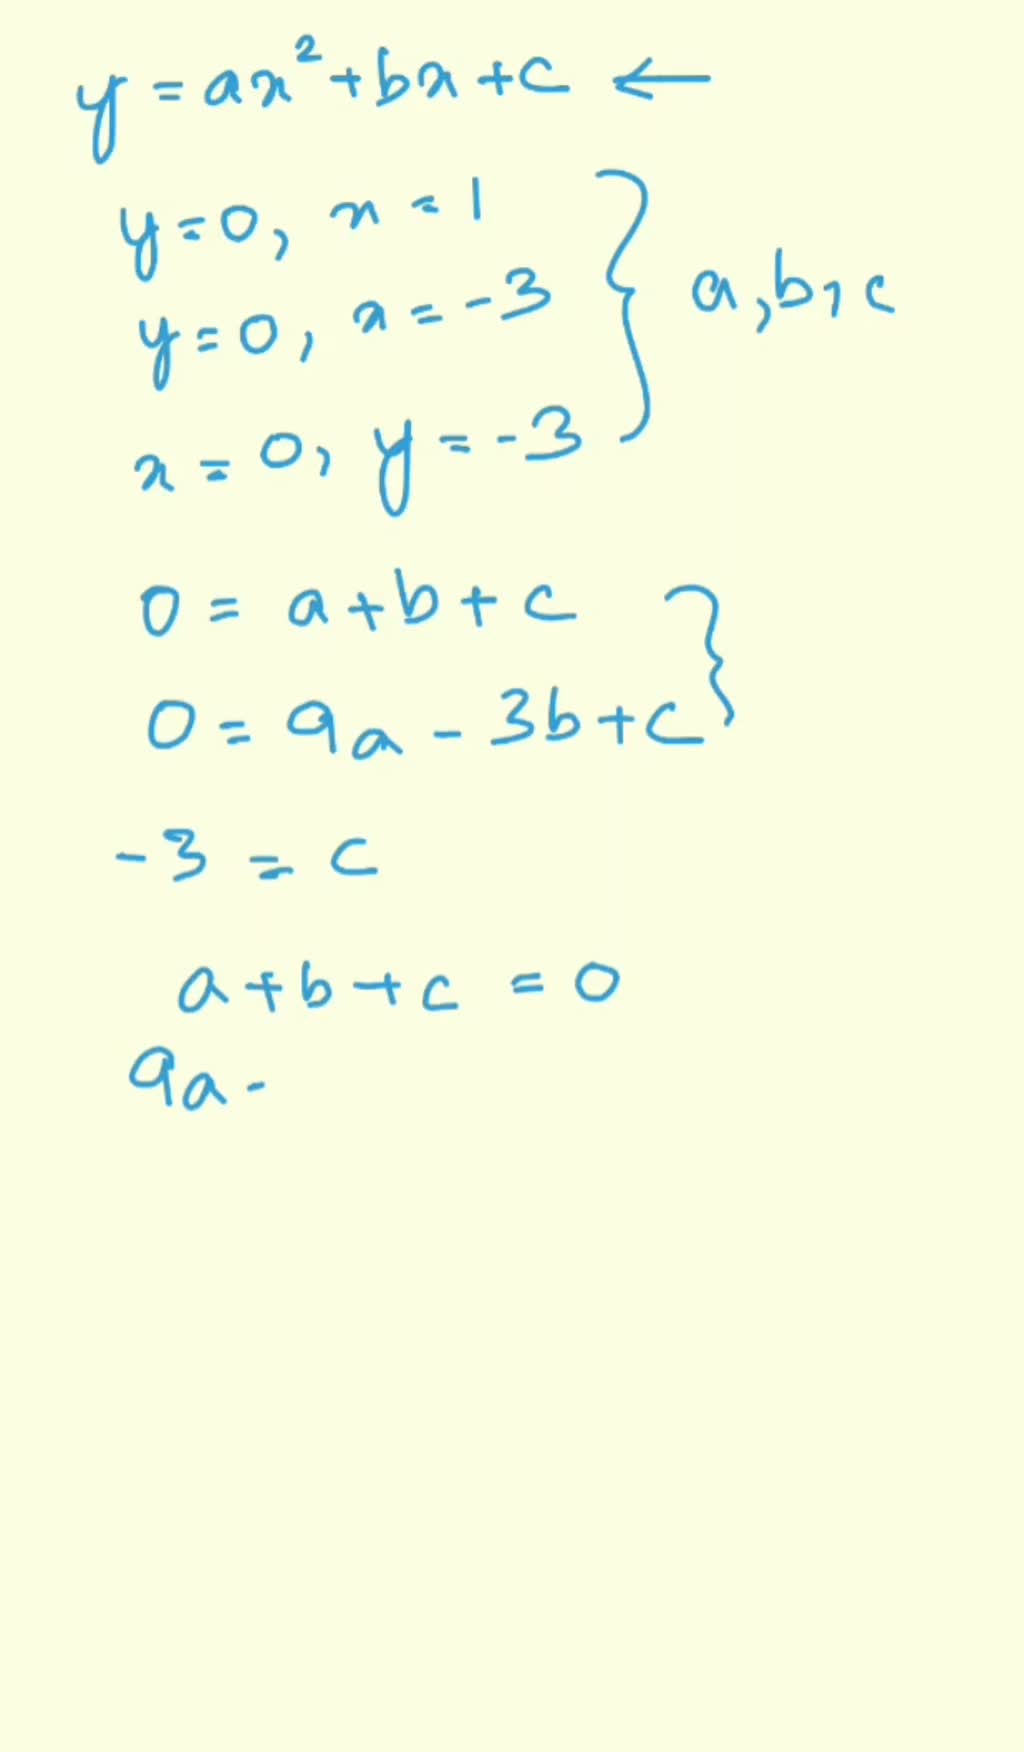 y = ax² + bx + c ←
y = 0, x = 1
y = 0, x = -3 } a, b, c
x = 0, y = -3
0 = a + b + c
0 = 9a - 3b + c }
-3 = c
a + b + c = 0
9a -